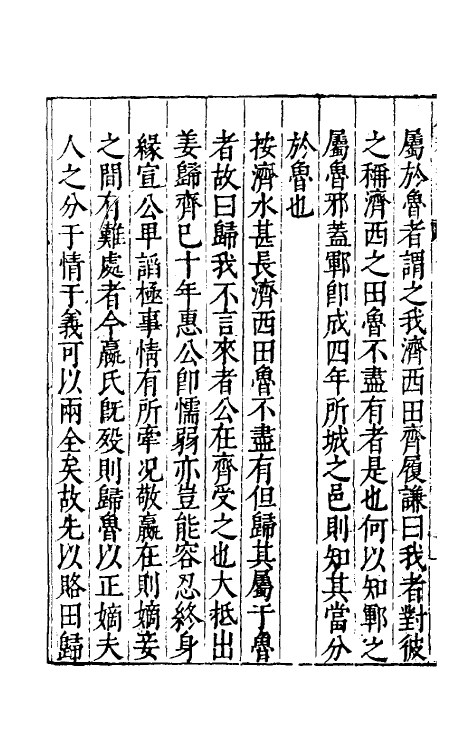 屬於魯者謂之我濟西田齊履謙曰我者對彼
之稱濟西之田魯不盡有者是也何以知鄆之
屬魯邪蓋鄆卽成四年所城之邑則知其當分
於魯也
按濟水甚長濟西田魯不盡有但歸其屬于魯
者故曰歸我不言來者公在齊受之也大抵出
姜歸齊已十年惠公卽懦弱亦豈能容忍終身
緣宣公卑謟極事情有所牽况敬嬴在則嫡妾
之間有難處者今嬴氏旣殁則歸魯以正嫡夫
人之分于情于義可以兩全矣故先以賂田歸